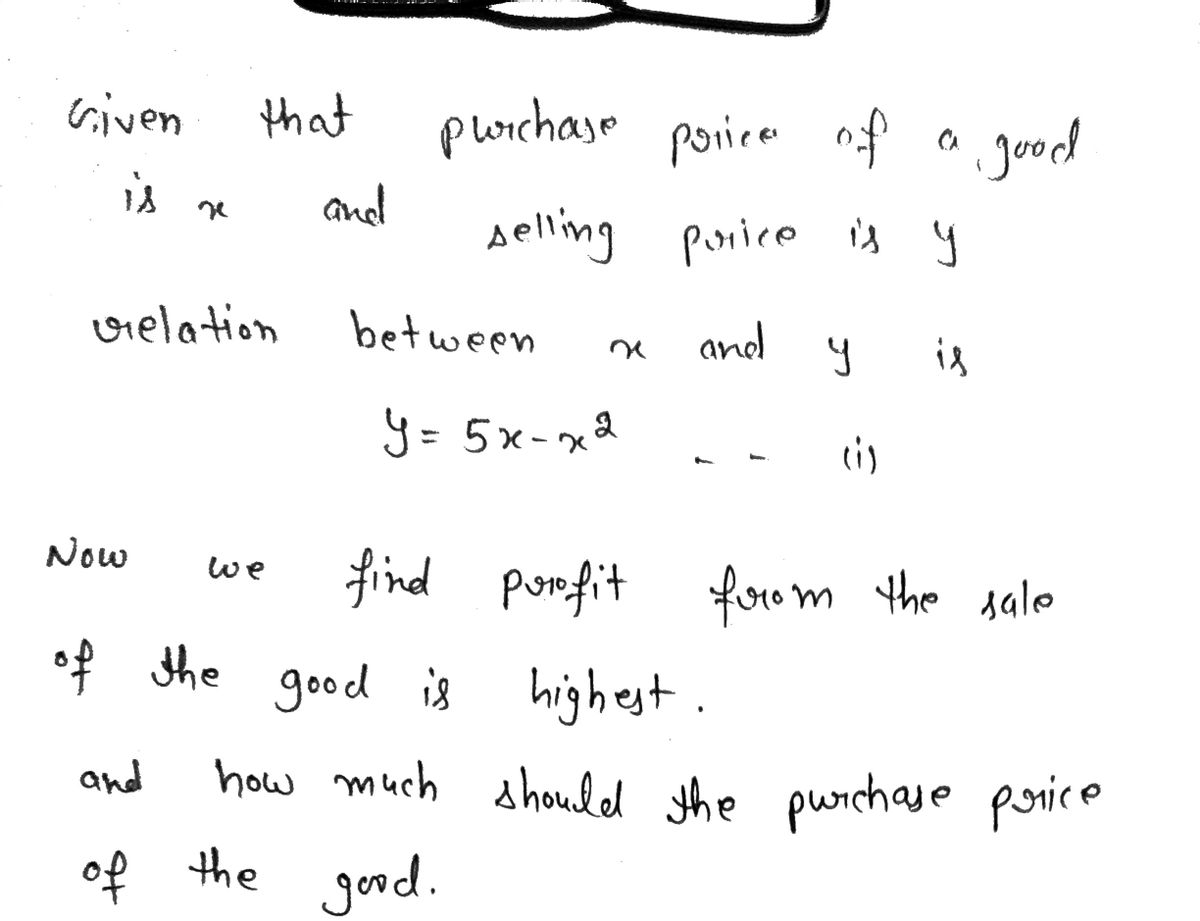 Given that purchase price of a good
is x and selling price is y
relation between x and y is
y = 5x - x² - - (i)
Now we find profit from the sale
of the good is highest.
and how much should the purchase price
of the good.